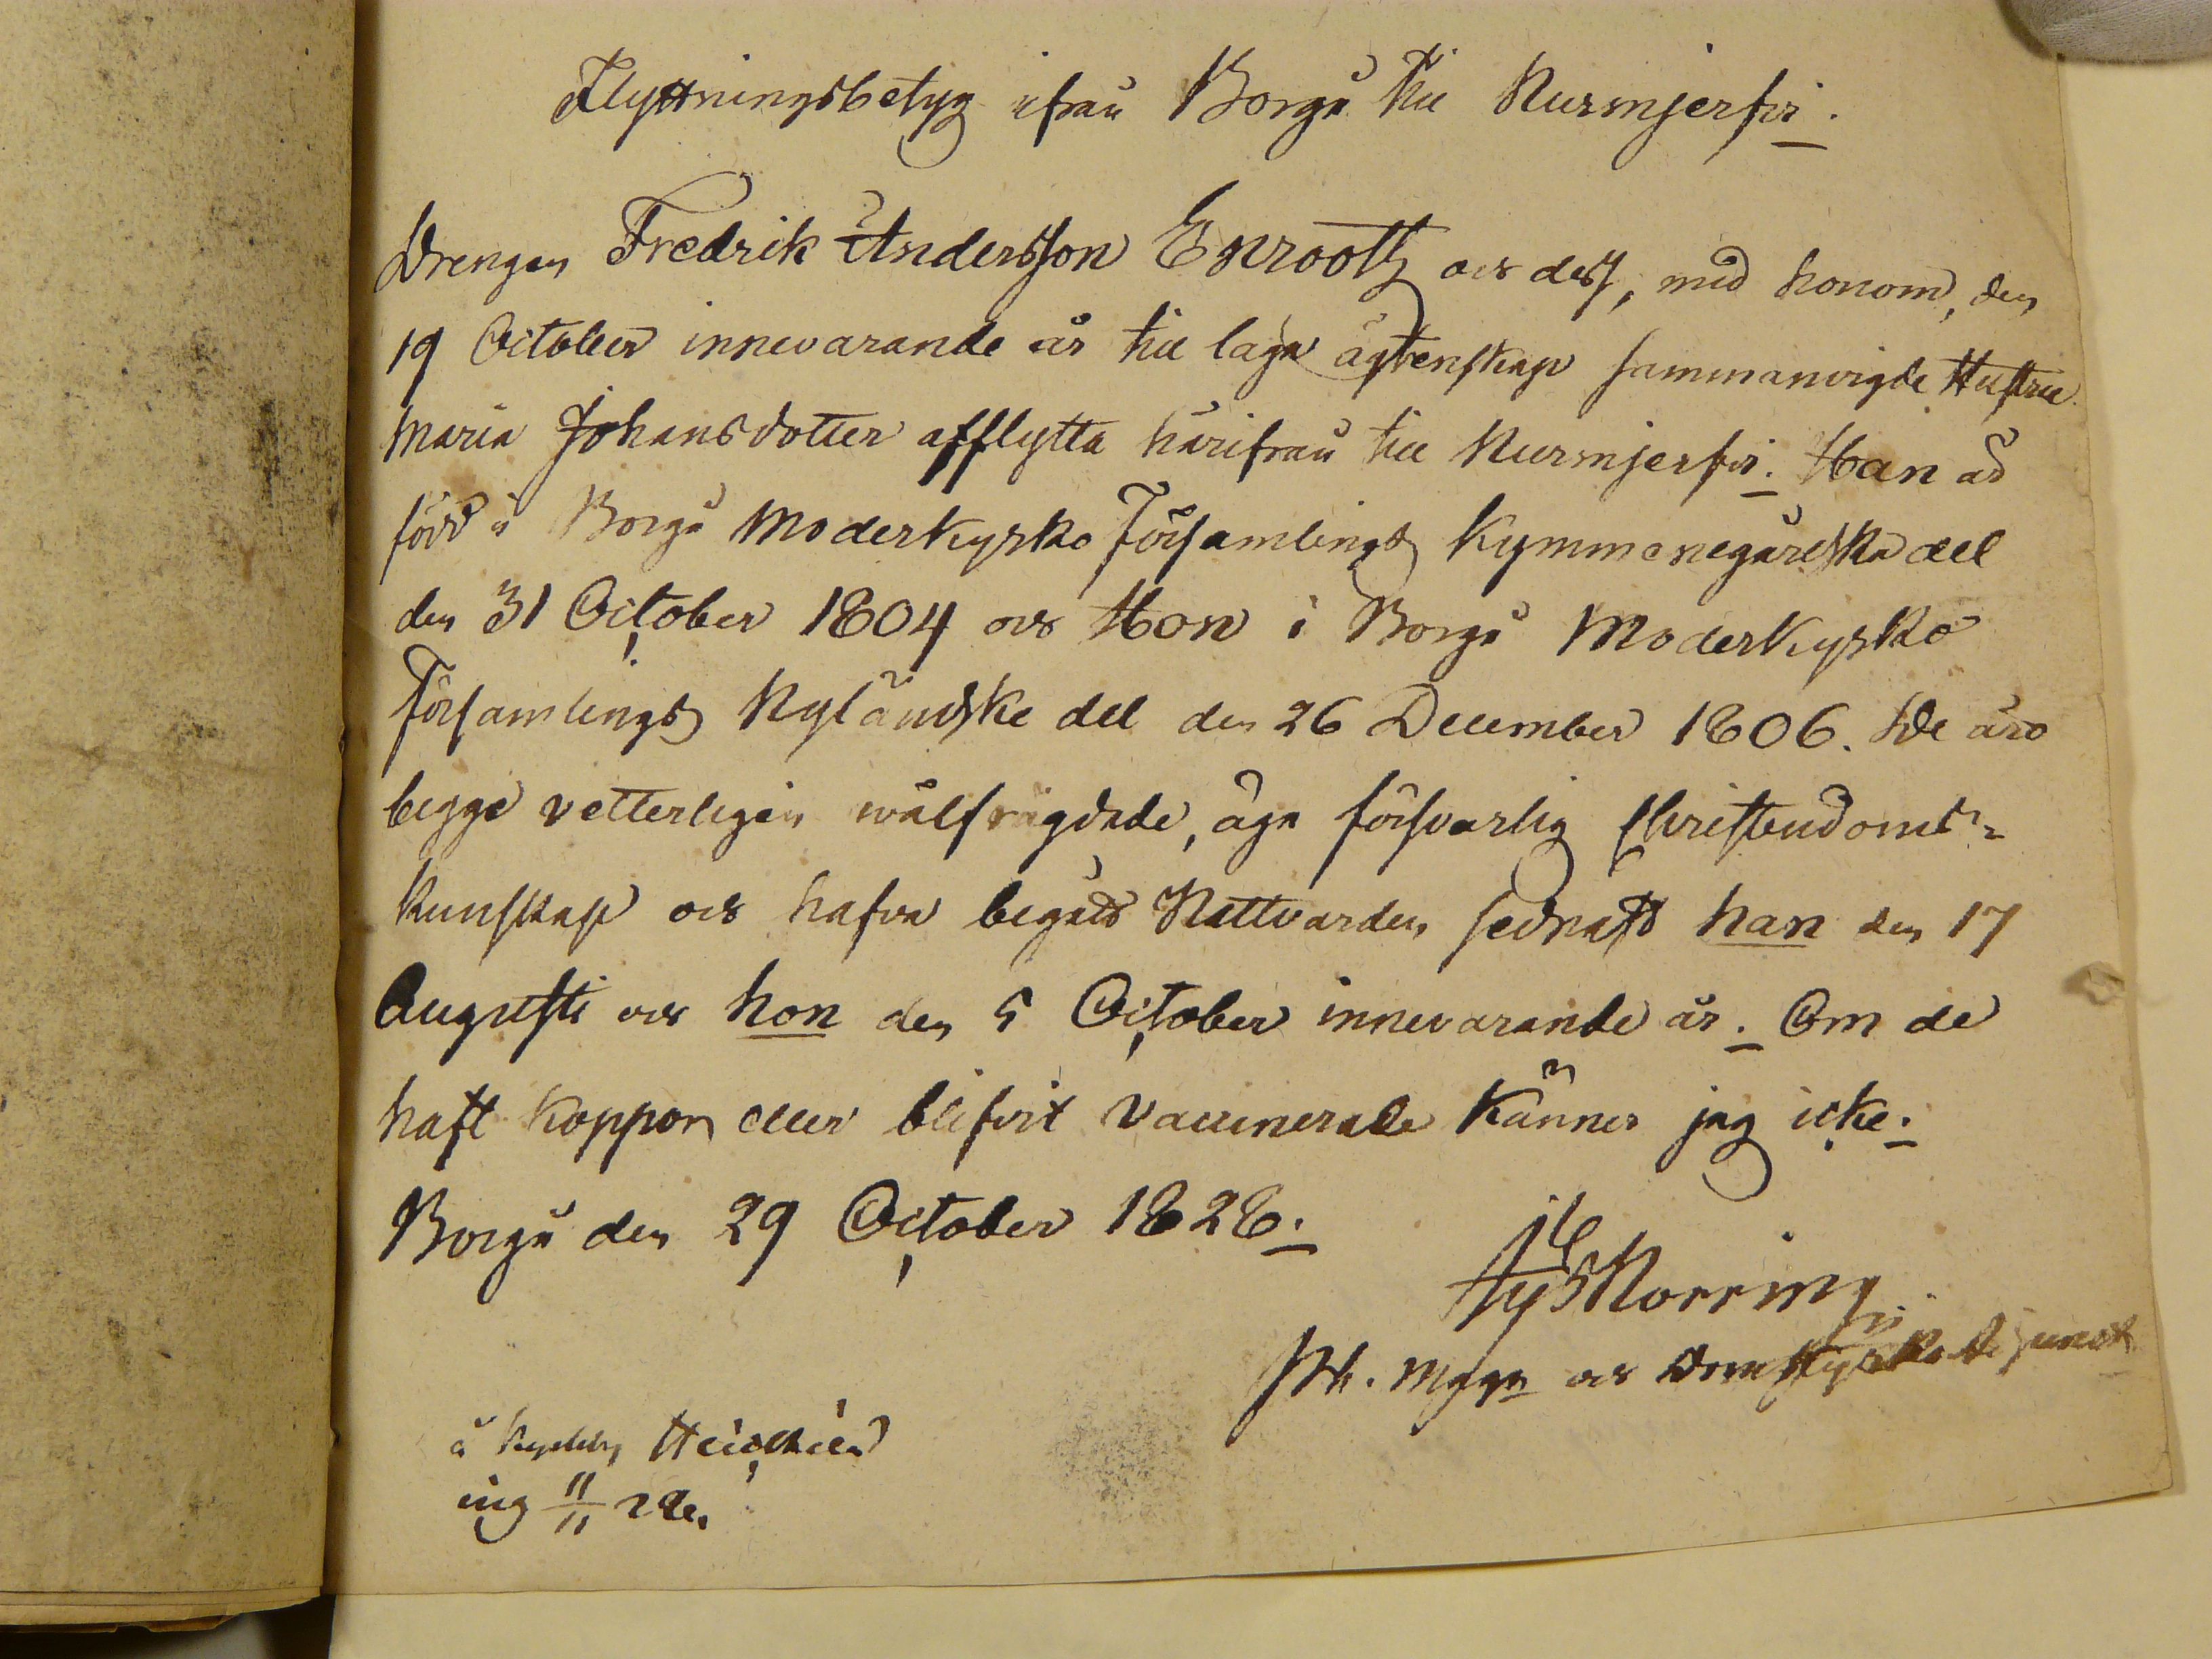 Flyttningsbetyg ifrån Borgå till Nurmjerfvi.
Drengen Fredrik Andersson Enrooth och dess, med honom, den
19 October innevarande år till laga ägtenskap sammanvigde Hustru
Maria Johansdotter afflytta härifrån till Nurmjerfvi. Han är
född i Borgå Moderkyrko Församlings Kymmenegårdska del
den 31 October 1804 och Hon i Borgå Moderkyrko
Församlings Nyländske del den 26 December 1806. De äro
begge vetterligen välfrägdade, äga försvarlig Christendoms=
kunskap och hafva begått Nattvarden sednast han den 17
Augusti och hon den 5 October innevarande år. Om de
haft koppor eller blifvit vaccinerade känner jag icke.
Borgå den 29 October 1828.
Norring
och Domkyrko Adjunct
å
11/11 28.